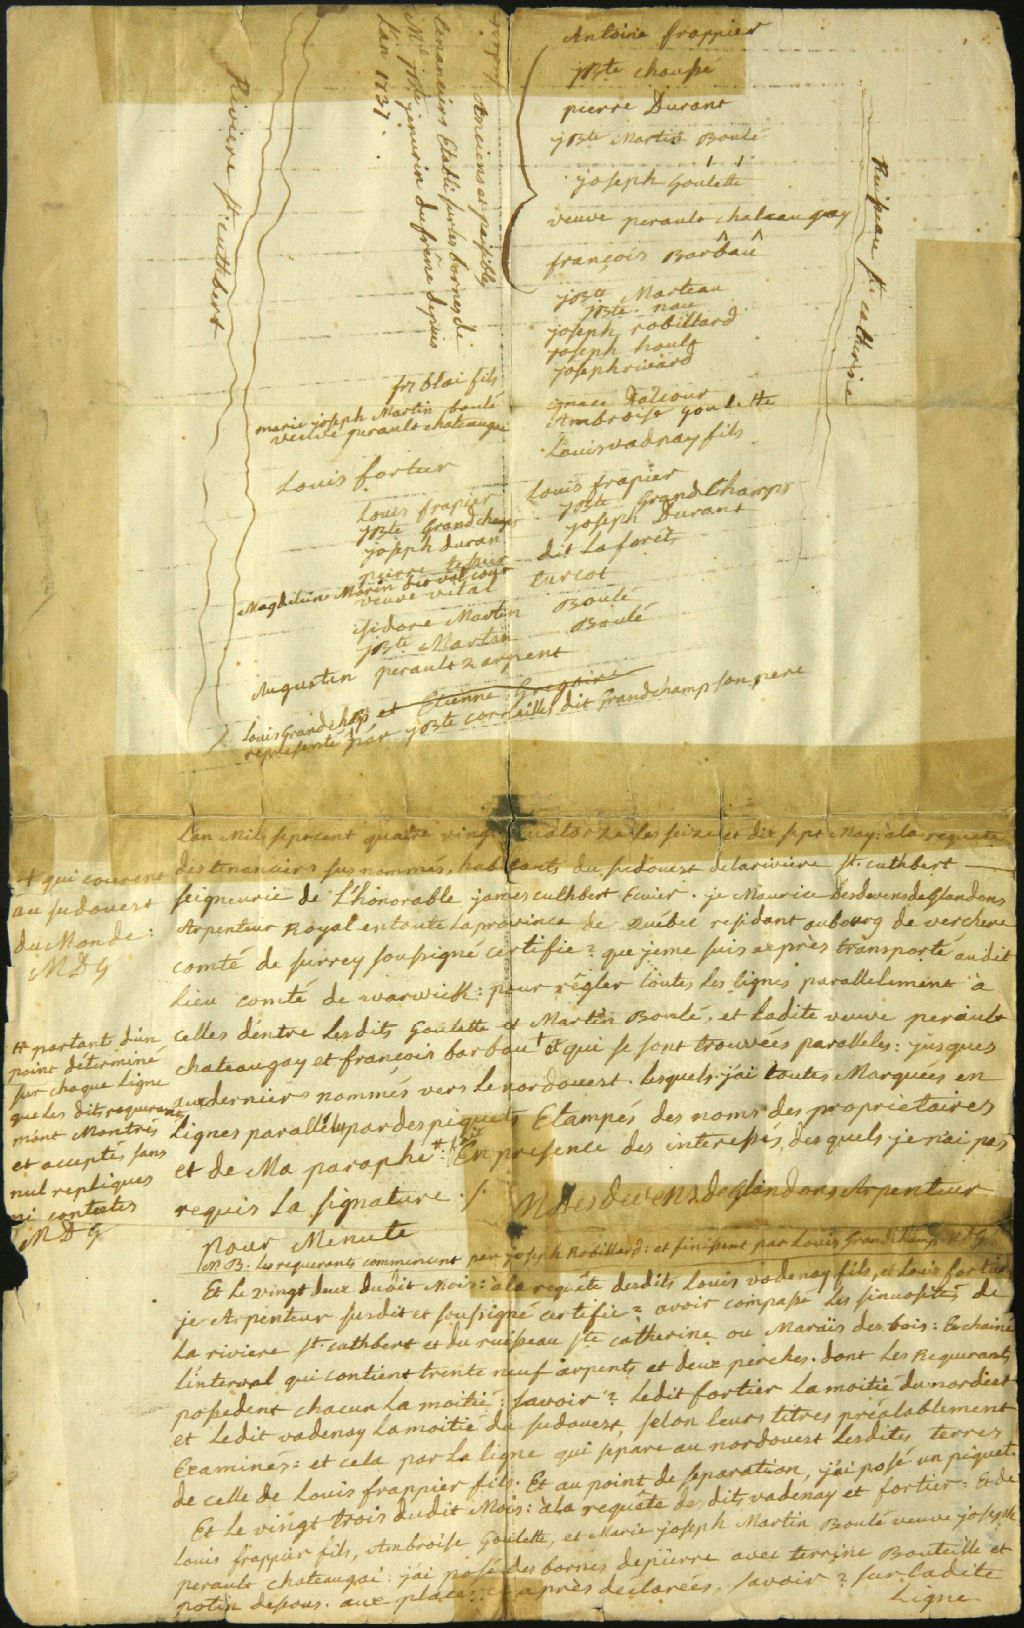 Antoine frappier
jBte choupé
pierre Durant
jBte Martin Boulé
joseph Goulette
veuve perault chateaugay
françois Barbâû
jBte Marteau
jBte nau
joseph robillard
joseph houle
joseph rivard
ignace
Ambroise Goulette
Louis vadnay fils
Louis frapier
jBte GrandChamps
joseph Durant
dit Laforêts
turcot
Boulé
Boulé
Anciens et paisibles
tenanciers Etabli sur les bornes de
Mr. jBte jenvrin dufrêne depuis
L'an 1737.
Riviere st. cuthbert
Ruisseau ste catherine
frs blai fils
marie joseph Martin boulé
veuve perault chateaugai
Louis fortier
Louis frapier
jBte Grandchamps
joseph duran
pierre
Magdeleine Morin
veuve vital
isidore Martin
jBte Martin
Augustin perault 2 arpent
Louis Grandchamp et Etienne Gregoire
representé par jBte cornaillé dit Grandchamp son pere
L'an Mil sept cent quatre vingt quatorze les seize et dix sept May: à la requete
des tenanciers sus nommés, habitants du sudouest de la riviere st. cuthbert
seigneurie de L'honorable james cuthbert Ecuier. je Maurice Desdevens de Glandons
Arpenteur Royal en toute La province de Québec residant au bourg de verchere
comté de surrey soussigné certifie? que je me suis exprès transporté au dit
Lieu comté de warwick: pour régler toutes les lignes parallelement à
celles d'entre Les dits Goulette et Martin Boulé, et Ladite veuve perault
chateaugay et françois barbau + et qui se sont trouvées paralleles: jusques
aux derniers nommés vers Le nordouest. Lesquels j'ai toutes Marquées en
Lignes paralleles par des piquets Etampés des noms des proprietaires
et de Ma paraphe # En presence des interessés, desquels je n'ai pas
requis La signature ./.
MDesdevens de Glandons Arpenteur
pour Minute
+ qui courent
au sudouest
du Monde:
MDG
# partant d'un
point déterminé
sur chaque Ligne
que Les dits requerants
m'ont Montrés
et acceptés sans
nul repliques
ni contestes
MDG
N.B: Les requerants commencent par joseph Robillard: et finissent par Louis Grandchamp MDG
Et Le vingt deux dudit Mois: à la requête desdits Louis vadenay fils, et Louis fortier
je Arpenteur susdit et soussigné certifie? avoir compassé Les sinuosités de
La riviere st. cuthbert et du ruisseau ste catherine ou Marais des bois: Et chainé
L'interval qui contient trente neuf arpents et deux perches. dont Les Requerants
possedent chacun La moitié: savoir? Ledit fortier La moitié du nordest
et Ledit vadenay La moitié du sudouest, selon leurs titres préalablement
Examinés: et cela par La ligne qui separe au nordouest Lesdites terres
de celle de Louis frappier fils. Et au point de separation, j'ai posé un piquet.
Et Le vingt trois dudit Mois: à la requête des dits vadenay et fortier: Et de
Louis frappier fils, Ambroise Goulette, et Marie joseph Martin Boulé veuve joseph
perault chateaugai: j'ai posé des bornes de pierre avec terrine Bouteille et
potin dessous. aux places ci après déclarées. savoir? sur Ladite
Ligne